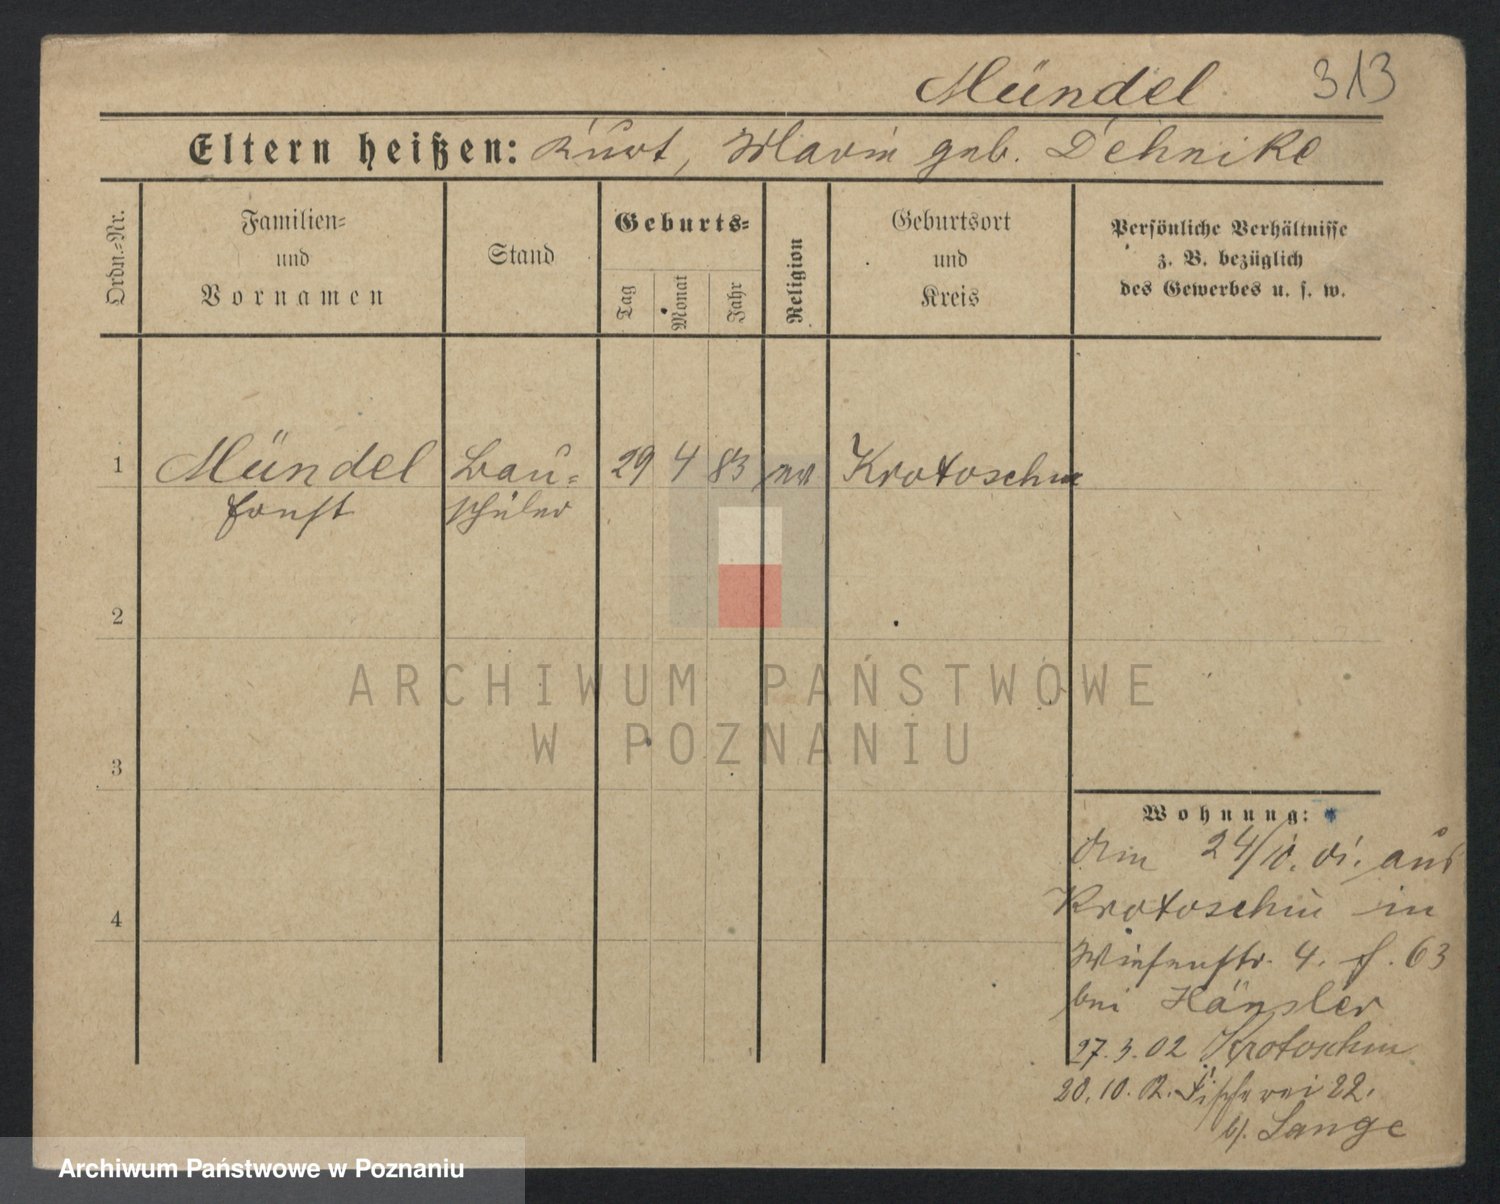 Mündel 313
Eltern heißen: Kurt, Marie geb. Dehnike
Ordn.-Nr.
Familien-
und
Vornamen
Stand
Geburts-
Tag
Monat
Jahr
Religion
Geburtsort
und
Kreis
Persönliche Verhältnisse
z. B. bezüglich
des Gewerbes u. s. w.
1 Mündel Bau- 29 4 83 ev Krotoschin
Ernst schüler
2
3
4
ARCHIWUM PAŃSTWOWE
W POZNANIU
Wohnung:
Am 24/10. 01. aus
Krotoschin in
Wiesenstr. 4. 63
bei Hänsler
27.3.02 Krotoschin
20.10.02. Fischerei 22.
b/. Lange
Archiwum Państwowe w Poznaniu